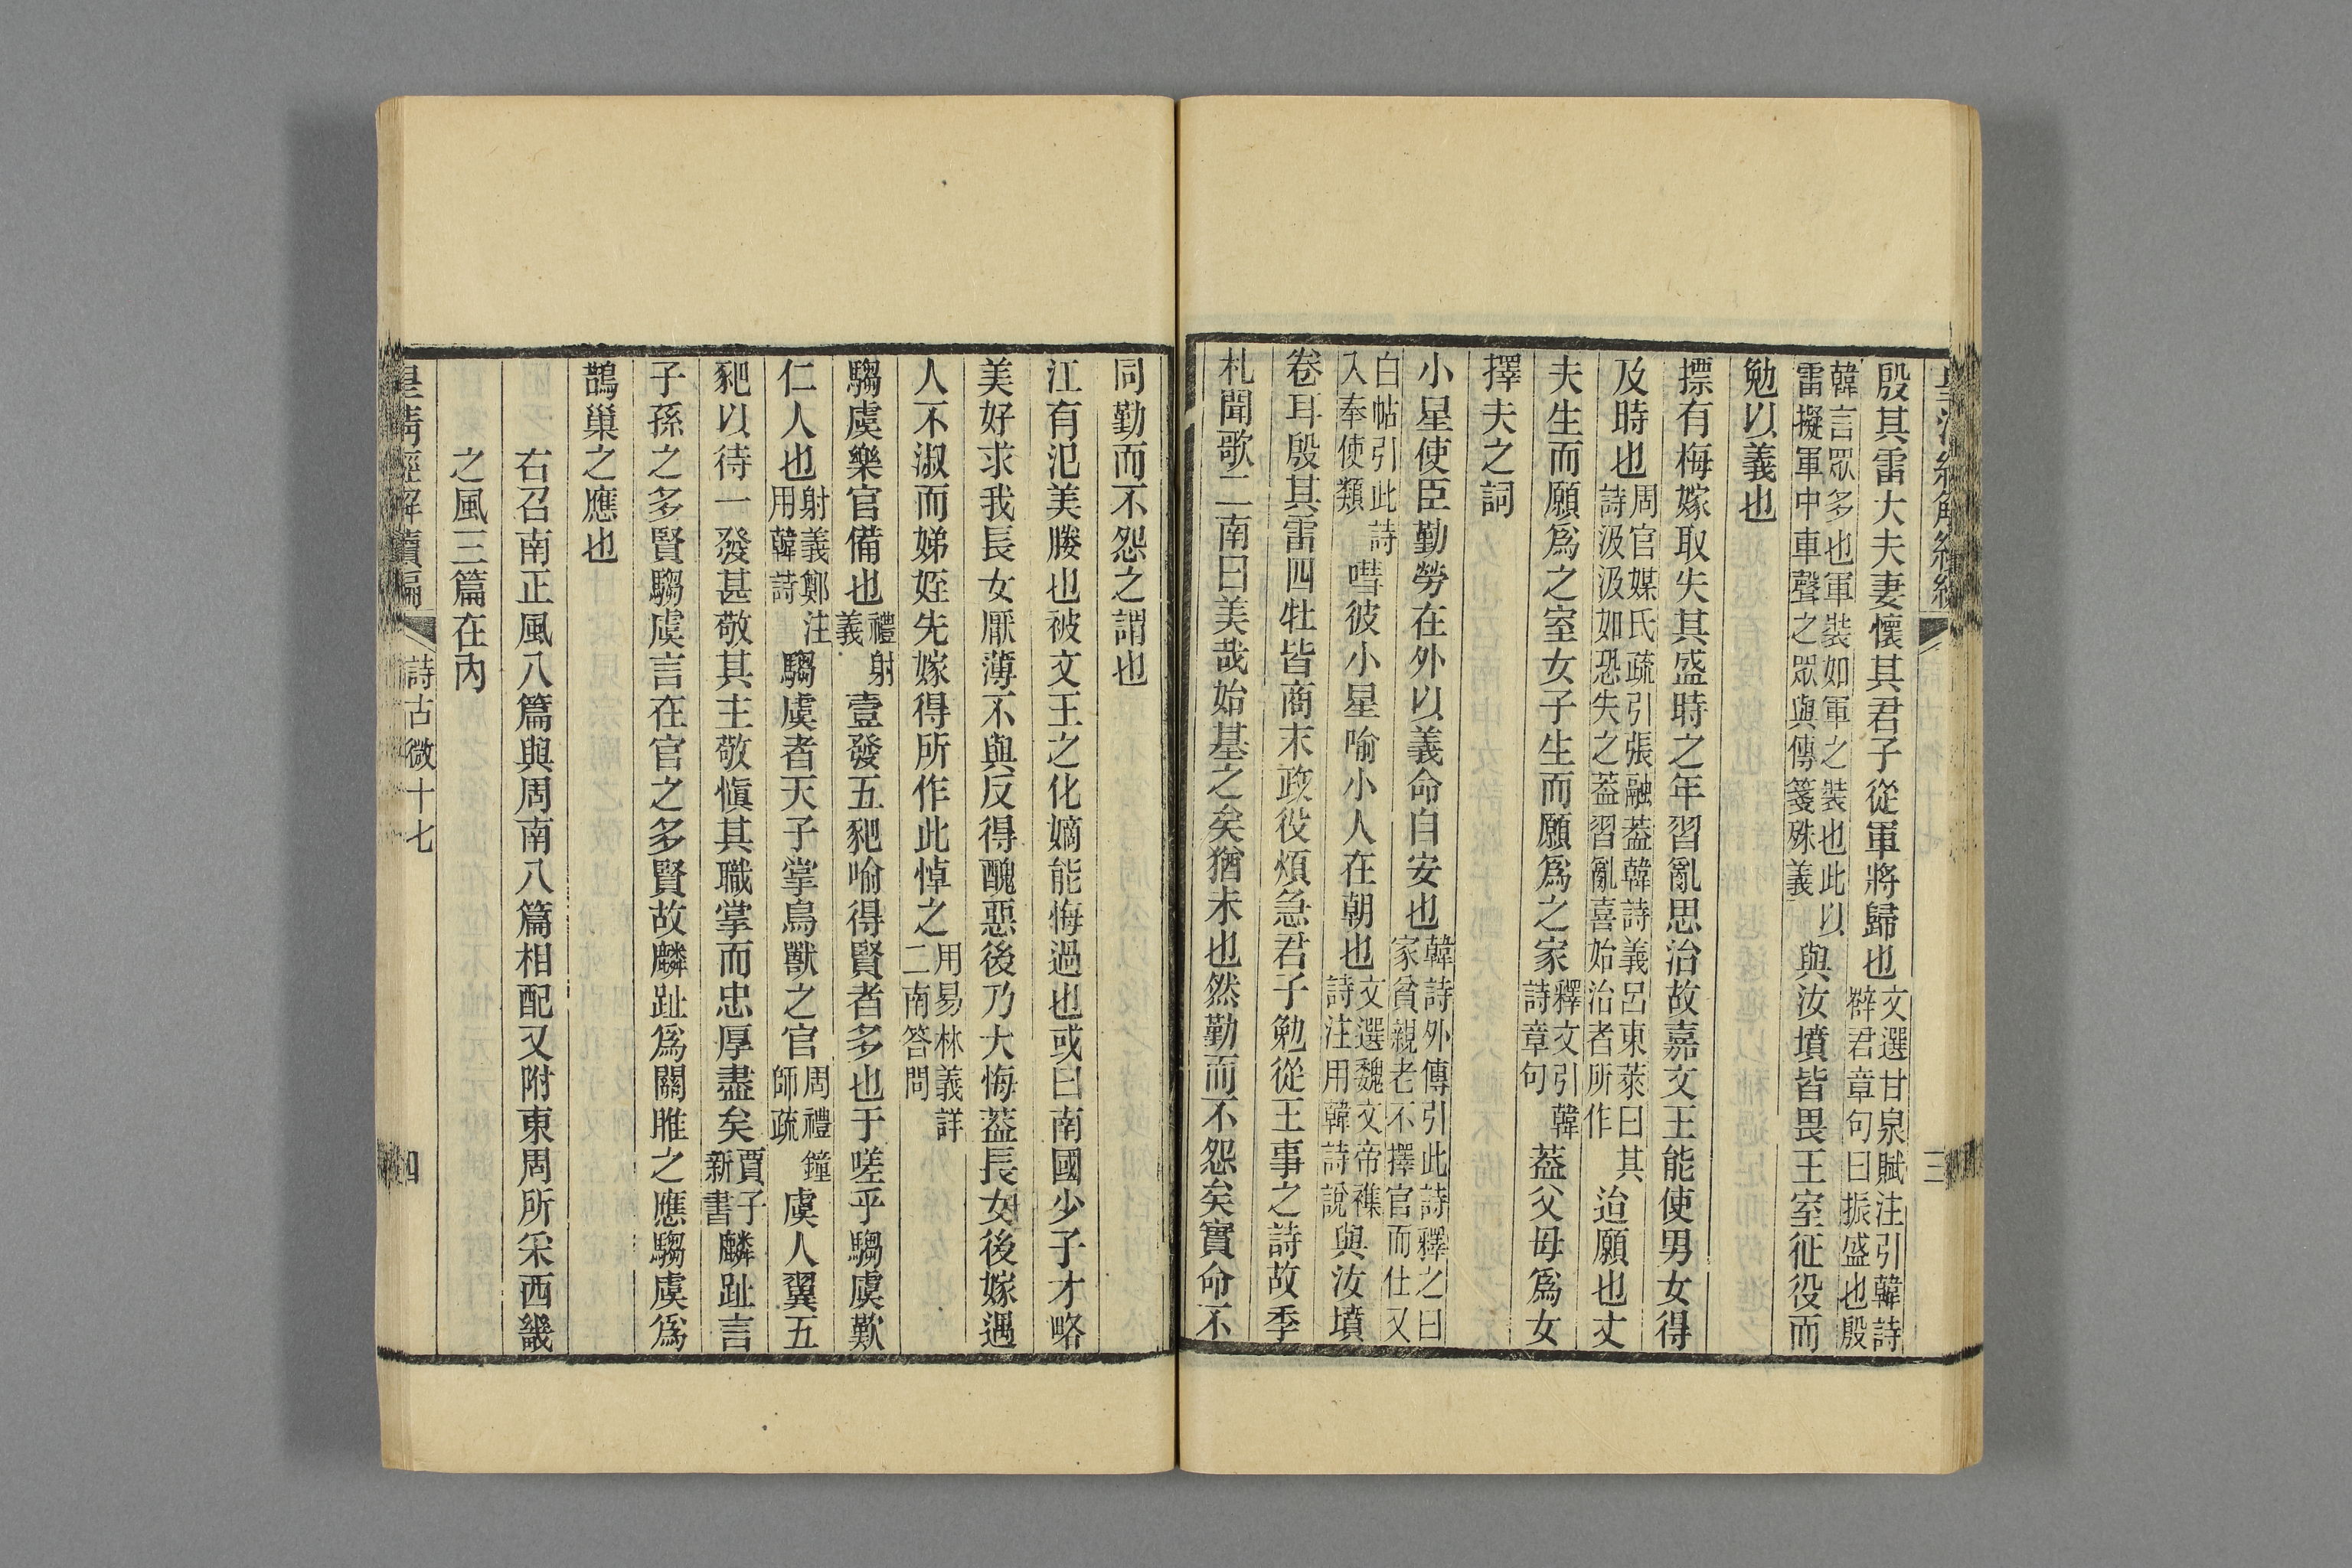 殷其雷大夫妻懷其君子從軍將歸也文選甘泉賦注引韓詩薛君章句曰振盛也殷
韓言眾多也軍裝如軍之裝也此以雷擬軍中車聲之眾與傳箋殊義與汝墳皆畏王室征役而
勉以義也
摽有梅嫁取失其盛時之年習亂思治故嘉文王能使男女得
及時也周官媒氏疏引張融葢韓詩義呂東萊曰其詩汲汲如恐失之葢習亂喜始治者所作迨願也丈
夫生而願爲之室女子生而願爲之家釋文引韓詩章句葢父母爲女
擇夫之詞
小星使臣勤勞在外以義命自安也韓詩外傳引此詩釋之曰家貧親老不擇官而仕又
白帖引此詩入奉使類嘒彼小星喻小人在朝也文選魏文帝襍詩注用韓詩說與汝墳
卷耳殷其雷四牡皆商末政役煩急君子勉從王事之詩故季
札聞歌二南曰美哉始基之矣猶未也然勤而不怨矣實命不
三
同勤而不怨之謂也
江有汜美媵也被文王之化嫡能悔過也或曰南國少子才略
美好求我長女厭薄不與反得醜惡後乃大悔葢長女後嫁遇
人不淑而娣姪先嫁得所作此悼之用易林義詳二南答問
騶虞樂官備也禮射義壹發五豝喻得賢者多也于嗟乎騶虞歎
仁人也射義鄭注用韓詩騶虞者天子掌鳥獸之官周禮鐘師疏虞人翼五
豝以待一發甚敬其主敬愼其職掌而忠厚盡矣賈子新書麟趾言
子孫之多賢騶虞言在官之多賢故麟趾爲關雎之應騶虞爲
鵲巢之應也
右召南正風八篇與周南八篇相配又附東周所采西畿
之風三篇在內
皇清經解續編 詩古微十七 四